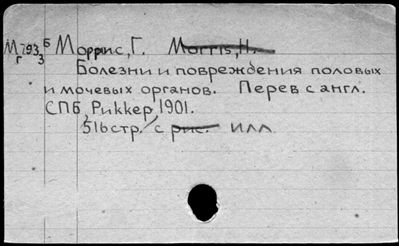 М793 Б Моррис, Г. Morris, H.
г 3
Болезни и повреждения половых
и мочевых органов. Перев с англ.
СПБ, Риккер, 1901.
516 стр. / с рис. илл